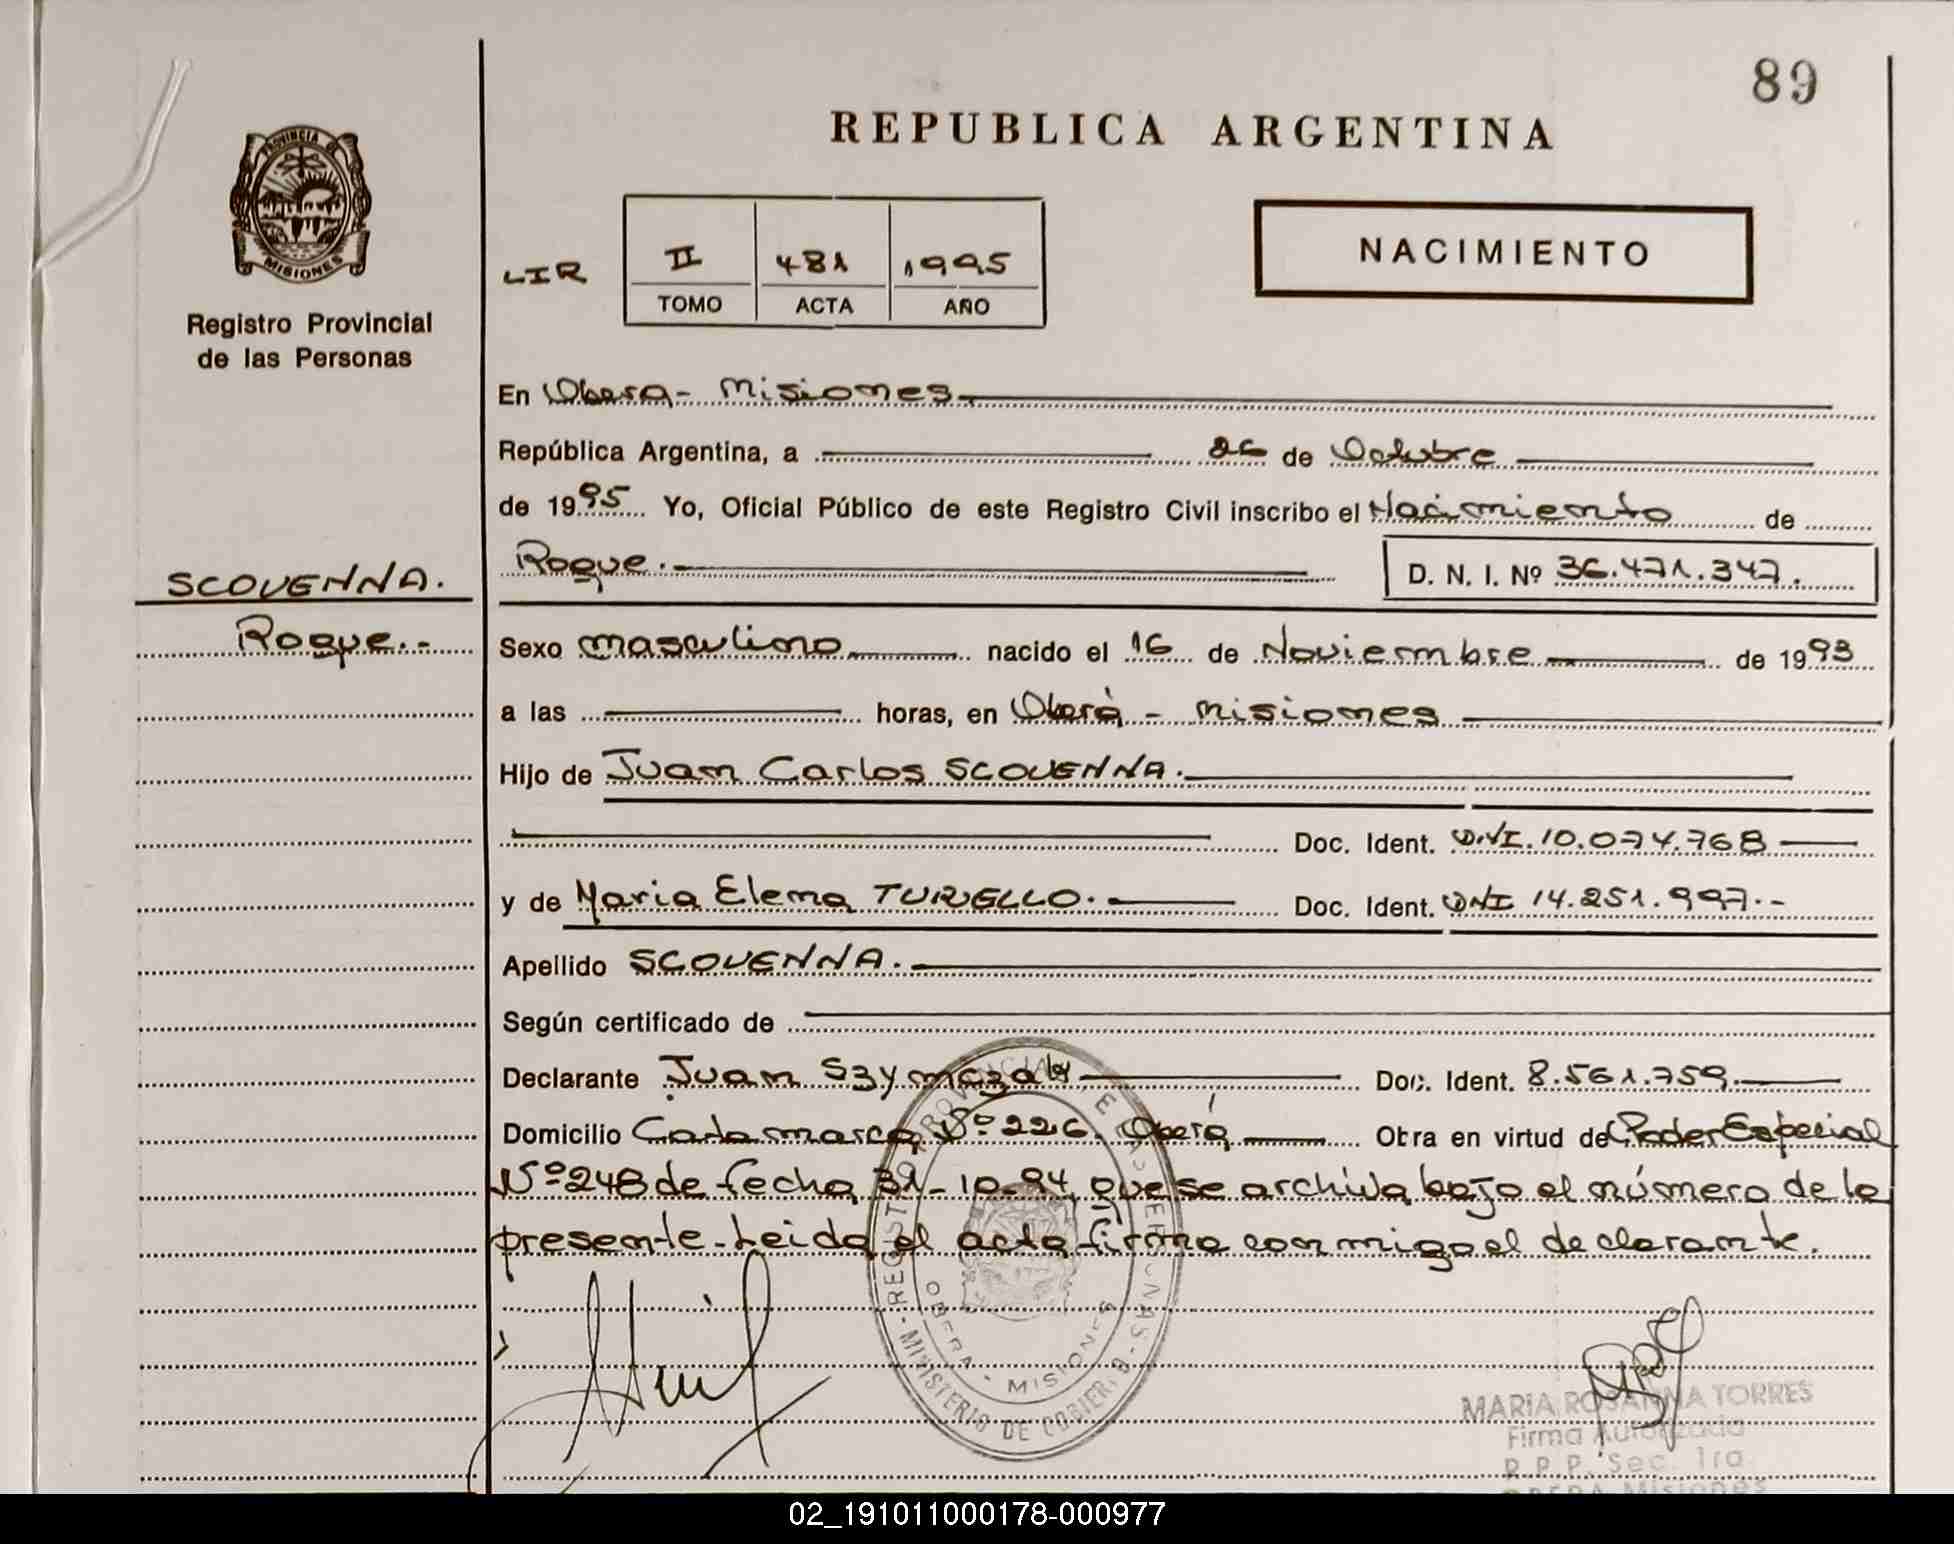 89
REPUBLICA ARGENTINA
PROVINCIA DE
MISIONES
Registro Provincial
de las Personas
LIR
II 481 1995
TOMO ACTA AÑO
NACIMIENTO
En Oberá - Misiones
República Argentina, a 26 de Octubre
de 1995 Yo, Oficial Público de este Registro Civil inscribo el Nacimiento de
Roque.- D. N. I. Nº 36.471.347.
SCOVENNA.
Roque.-
Sexo masculino nacido el 16 de Noviembre de 1993
a las horas, en Oberá - Misiones
Hijo de Juan Carlos SCOVENNA.
Doc. Ident. DNI. 10.074.768
y de Maria Elena TURELLO. Doc. Ident. DNI 14.251.997.-
Apellido SCOVENNA.
Según certificado de
Declarante Juan Doc. Ident. 8.561.759.
Domicilio Catamarca Nº 226. Oberá Obra en virtud de Poder Especial
Nº 248 de fecha 31-10-94, que se archiva bajo el número de la
presente. Leida el acta firma conmigo el declarante.
REGISTRO PROVINCIAL DE LAS PERSONAS
OBERA - MISIONES
MINISTERIO DE GOBIERNO
MARIA ROSANNA TORRES
Firma Autorizada
R.P.P. Sec. 1ra.
OBERA Misiones
02_191011000178-000977